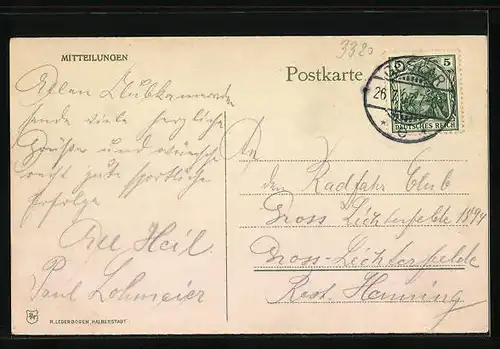 MITTEILUNGEN
Postkarte
3380
5 5
GOSLAR
26.7.
DEUTSCHES REICH
Allen Klubkameraden
sende viele herzliche
Grüße und wünsche
recht gute sportliche
Erfolge
All Heil
Paul Lohmeier
An
den Radfahr Club
Gross Lichterfelde 1894
Gross-Lichterfelde
Rest. Henning
R. LEDERBOGEN, HALBERSTADT